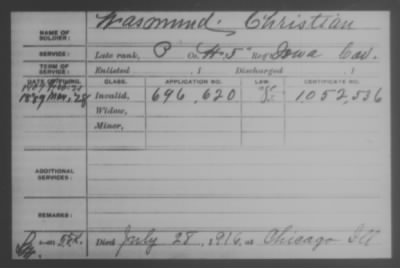 Wasmund, Christian
NAME OF SOLDIER:
SERVICE: Late rank, P Co. H, 5" Reg Iowa Cav.
TERM OF SERVICE: Enlisted , 1 Discharged , 1
DATE OF FILING. CLASS. APPLICATION NO. LAW. CERTIFICATE NO.
1889 Nov. 28 Invalid, 696,620 1,052,536
Widow,
Minor,
ADDITIONAL SERVICES:
REMARKS:
Died July 28, 1916, at Chicago Ill